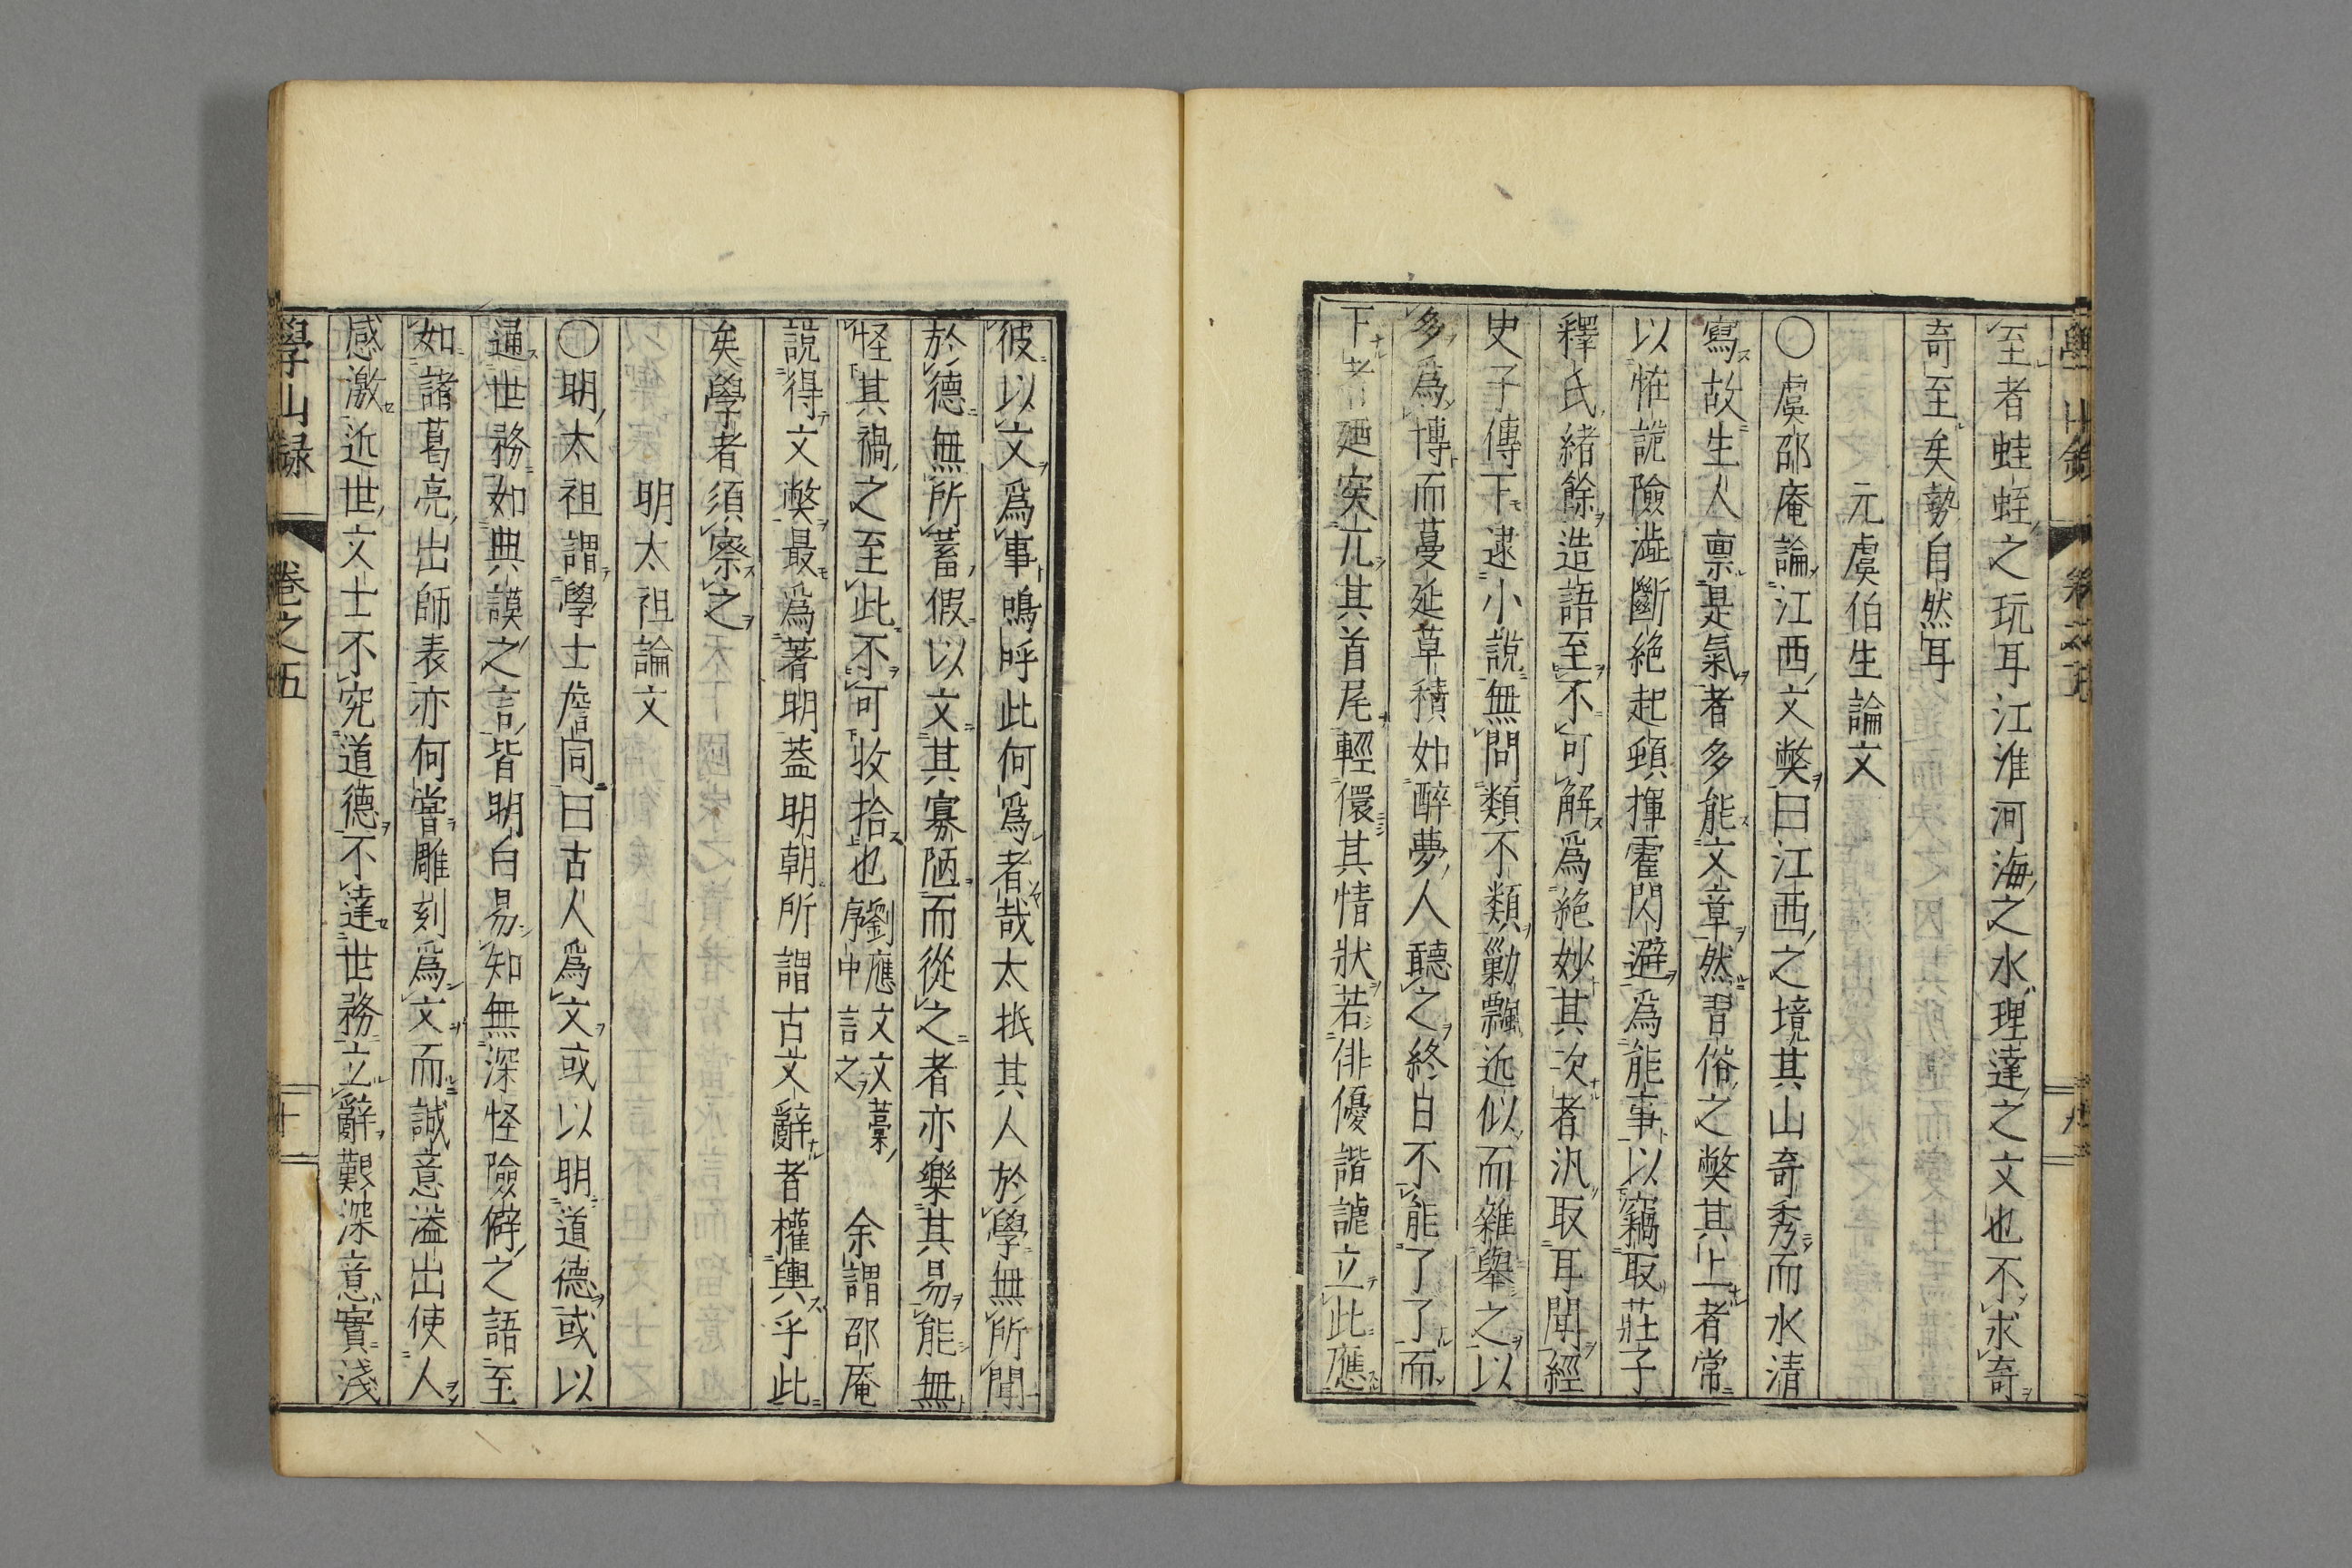 至者蛙蛭之玩耳江淮河海之水理達之文也不求奇
奇至矣勢自然耳
元虞伯生論文
〇虞邵庵論江西文獘曰江西之境其山奇秀而水清
寫故生人禀是氣者多能文章然習俗之獘其上者常
以恠詭險澁斷絶起頓揮霍閃避爲能事以竊取莊子
釋氏緒餘造語至不可解爲絶妙其次者汎取耳聞經
史子傳下逮小說無問類不類勦飄近似而雜舉之以
多爲博而蔓延草積如醉夢人聽之終日不能了了而
下者廼突兀其首尾輕儇其情狀若俳優諧謔立此應
彼以文爲事嗚呼此何爲者哉太抵其人於學無所聞
於德無所蓄假以文其寡陋而從之者亦樂其易能無
怪其禍之至此不可收拾也劉應文文藁序中言之余謂邵庵
說得文獘最爲著明葢明朝所謂古文辭者權輿乎此
矣學者須察之
明太祖論文
〇明太祖謂學士詹同曰古人爲文或以明道德或以
通世務如典謨之言皆明白易知無深怪險僻之語至
如諸葛亮出師表亦何嘗雕刻爲文而誠意溢出使人
感激近世文士不究道德不達世務立辭艱深意實淺
學山録 卷之五 十